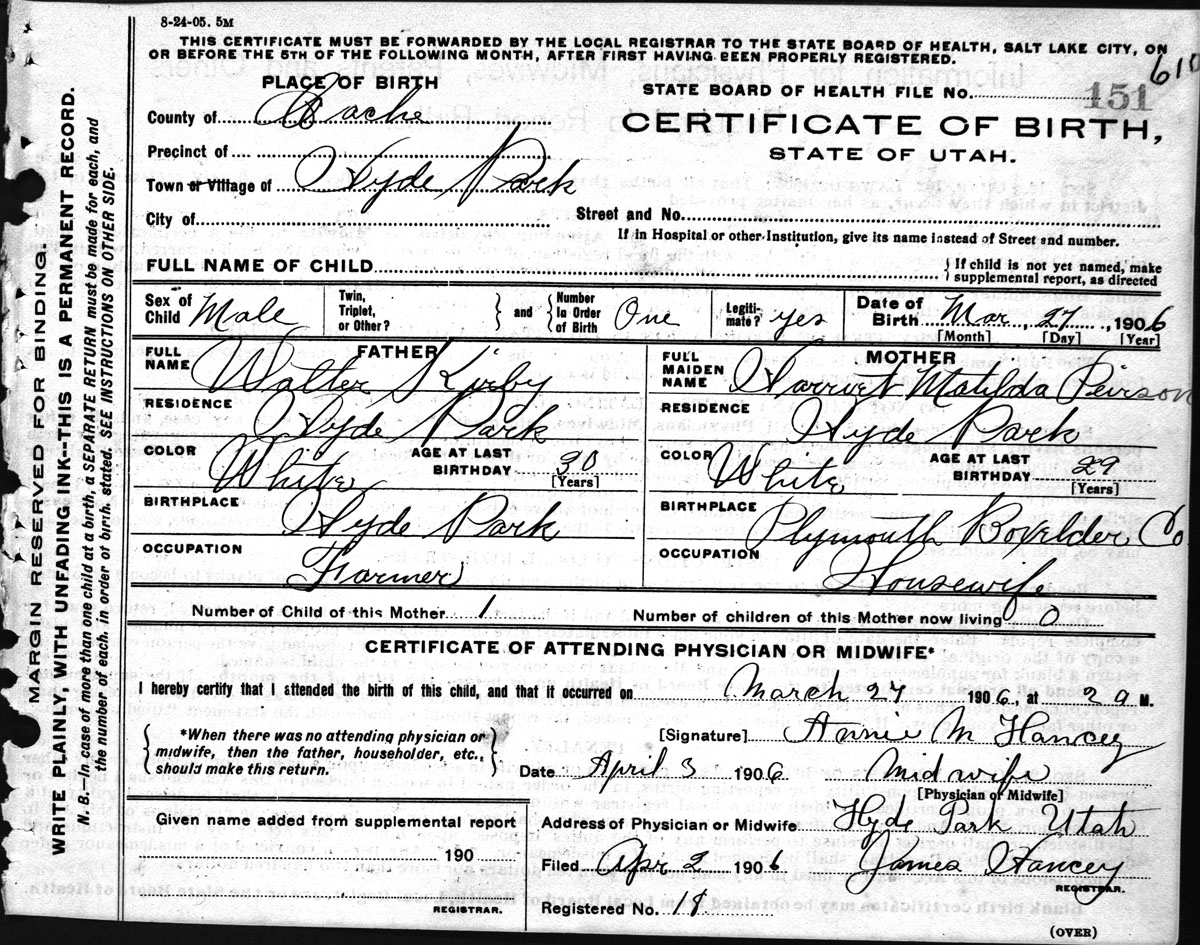 8-24-05. 5M
THIS CERTIFICATE MUST BE FORWARDED BY THE LOCAL REGISTRAR TO THE STATE BOARD OF HEALTH, SALT LAKE CITY, ON
OR BEFORE THE 5TH OF THE FOLLOWING MONTH, AFTER FIRST HAVING BEEN PROPERLY REGISTERED.
610
PLACE OF BIRTH
STATE BOARD OF HEALTH FILE No. 151
County of Cache
CERTIFICATE OF BIRTH,
STATE OF UTAH.
Precinct of
Town or Village of Hyde Park
City of
Street and No.
If in Hospital or other Institution, give its name instead of Street and number.
FULL NAME OF CHILD
{ If child is not yet named, make
supplemental report, as directed
Sex of Child Male Twin, Triplet, or Other? } and { Number In Order of Birth One Legiti- mate? yes Date of Birth Mar, 27, 1906
[Month] [Day] [Year]
FATHER
FULL NAME Walter Kirby
RESIDENCE Hyde Park
COLOR White AGE AT LAST BIRTHDAY 30
[Years]
BIRTHPLACE Hyde Park
OCCUPATION Farmer
MOTHER
FULL MAIDEN NAME Harriet Matilda Peirson
RESIDENCE Hyde Park
COLOR White AGE AT LAST BIRTHDAY 29
[Years]
BIRTHPLACE Plymouth Bovelder Co
OCCUPATION Housewife
Number of Child of this Mother 1 Number of children of this Mother now living 0
CERTIFICATE OF ATTENDING PHYSICIAN OR MIDWIFE*
I hereby certify that I attended the birth of this child, and that it occurred on March 27 1906, at 2 a M.
{ *When there was no attending physician or
midwife, then the father, householder, etc.,
should make this return. }
[Signature] Annie M Hancey
Date April 3 1906 Midwife
[Physician or Midwife]
Given name added from supplemental report
190
REGISTRAR.
Address of Physician or Midwife Hyde Park Utah
Filed Apr 2 1906 James Hancey
REGISTRAR.
Registered No. 18
(OVER)
MARGIN RESERVED FOR BINDING.
WRITE PLAINLY, WITH UNFADING INK--THIS IS A PERMANENT RECORD.
N. B.--In case of more than one child at a birth, a SEPARATE RETURN must be made for each, and
the number of each, in order of birth, stated. SEE INSTRUCTIONS ON OTHER SIDE.